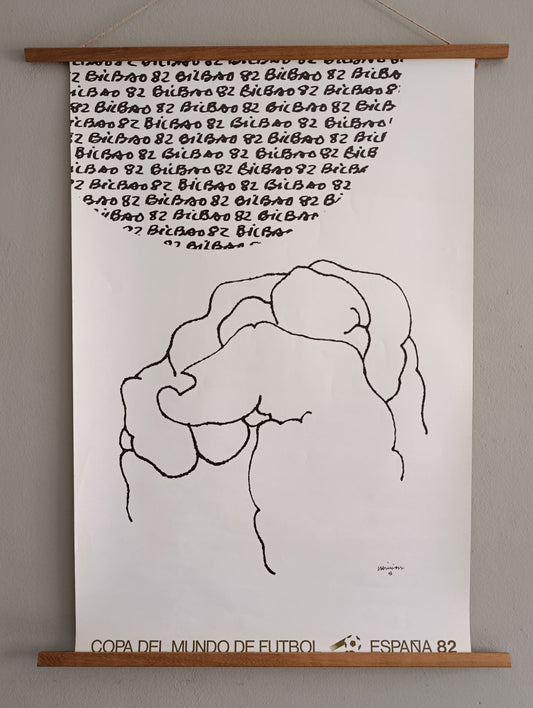 82 BiLBAO 82 BiLBAO 82 BiLBA
82 BiLBAO 82 BiLBAO 82 BiLBAO
82 BiLBAO 82 BiLBAO 82 BiLBAO 8
BiLBAO 82 BiLBAO 82 BiLBAO 82
BiLBAO 82 BiLBAO 82 BiLBAO
2 BiLBAO 82 BiLBAO 82 BiLB
BiLBAO 82 BiLBAO 82 BiLB
LBAO 82 BiLBAO 82 BiLBA
82 BiLBAO 82 BiLBAO 82
BAO 82 BiLBAO 82 BiLB
BAO 82 BiLBAO 82 BiLBAO
82 BiLBAO 82 BiLBAO
82 BiLBAO
COPA DEL MUNDO DE FUTBOL ESPAÑA 82